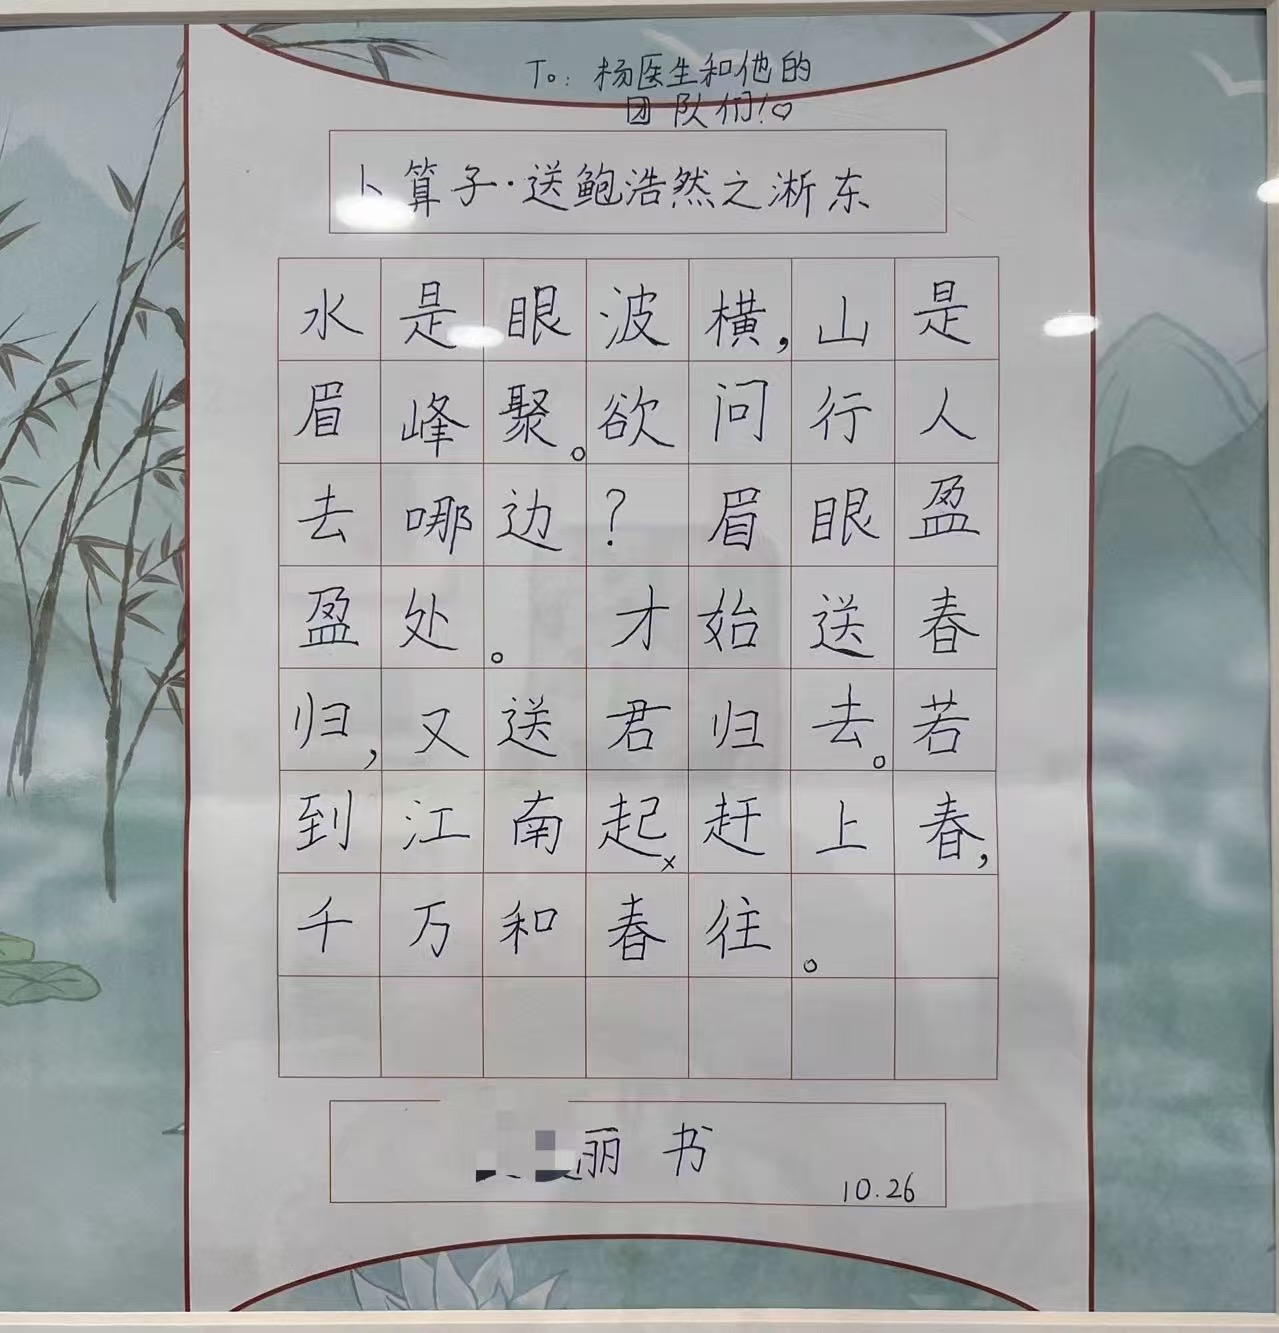 To: 杨医生和他的
团队们!♡
卜算子·送鲍浩然之淅东
水是眼波横,山是
眉峰聚。欲问行人
去哪边?眉眼盈
盈处。才始送春
归,又送君归去。若
到江南起×赶上春,
千万和春往。
丽 书
10.26